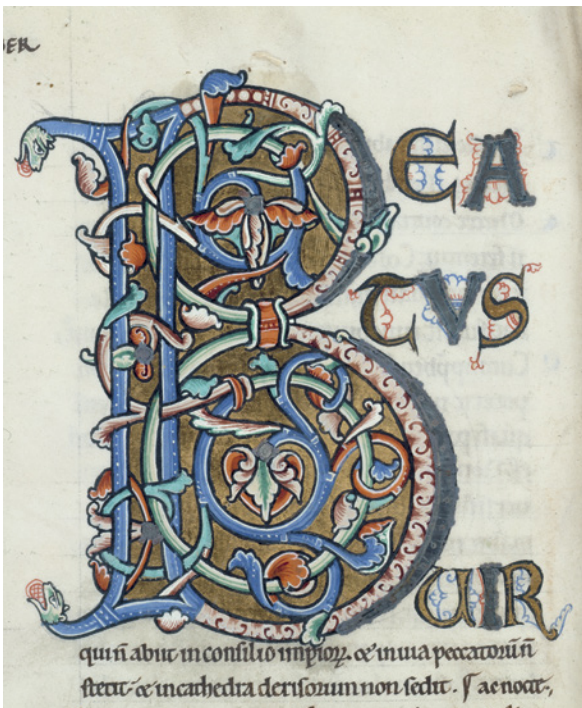 BER
BEA
TVS
VIR
qui n̄ abiit in consilio impioꝝ. & in uia peccatorū n̄
stetit. & in cathedra derisorum non sedit.